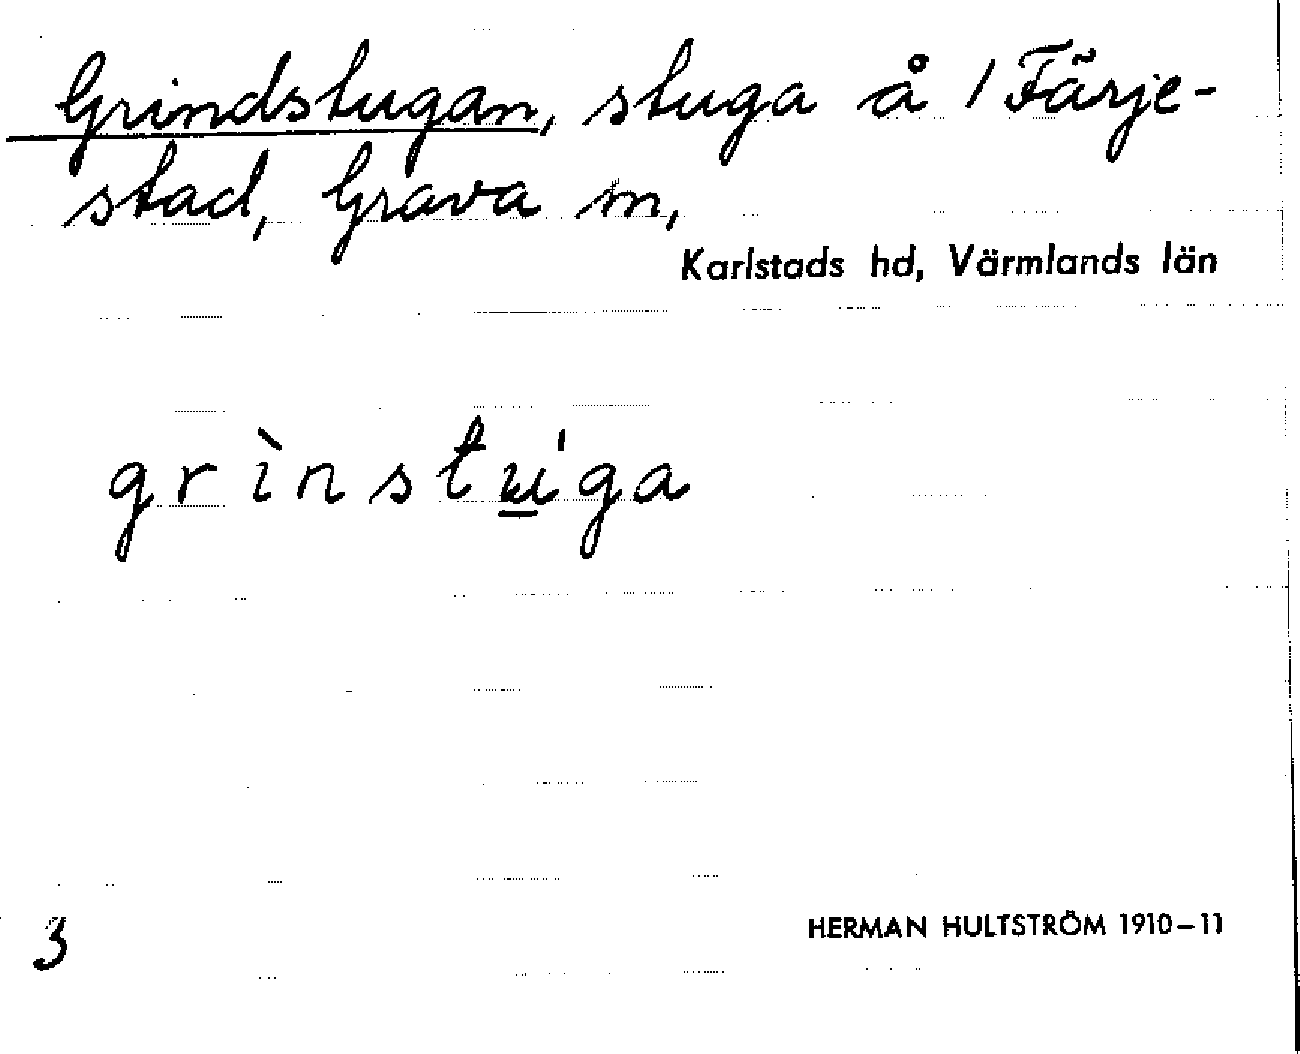 Grindstugan, stuga å / Färje-
stad, Grava sn,
Karlstads hd, Värmlands län
grìnstu̲'ga
3
HERMAN HULTSTRÖM 1910–11